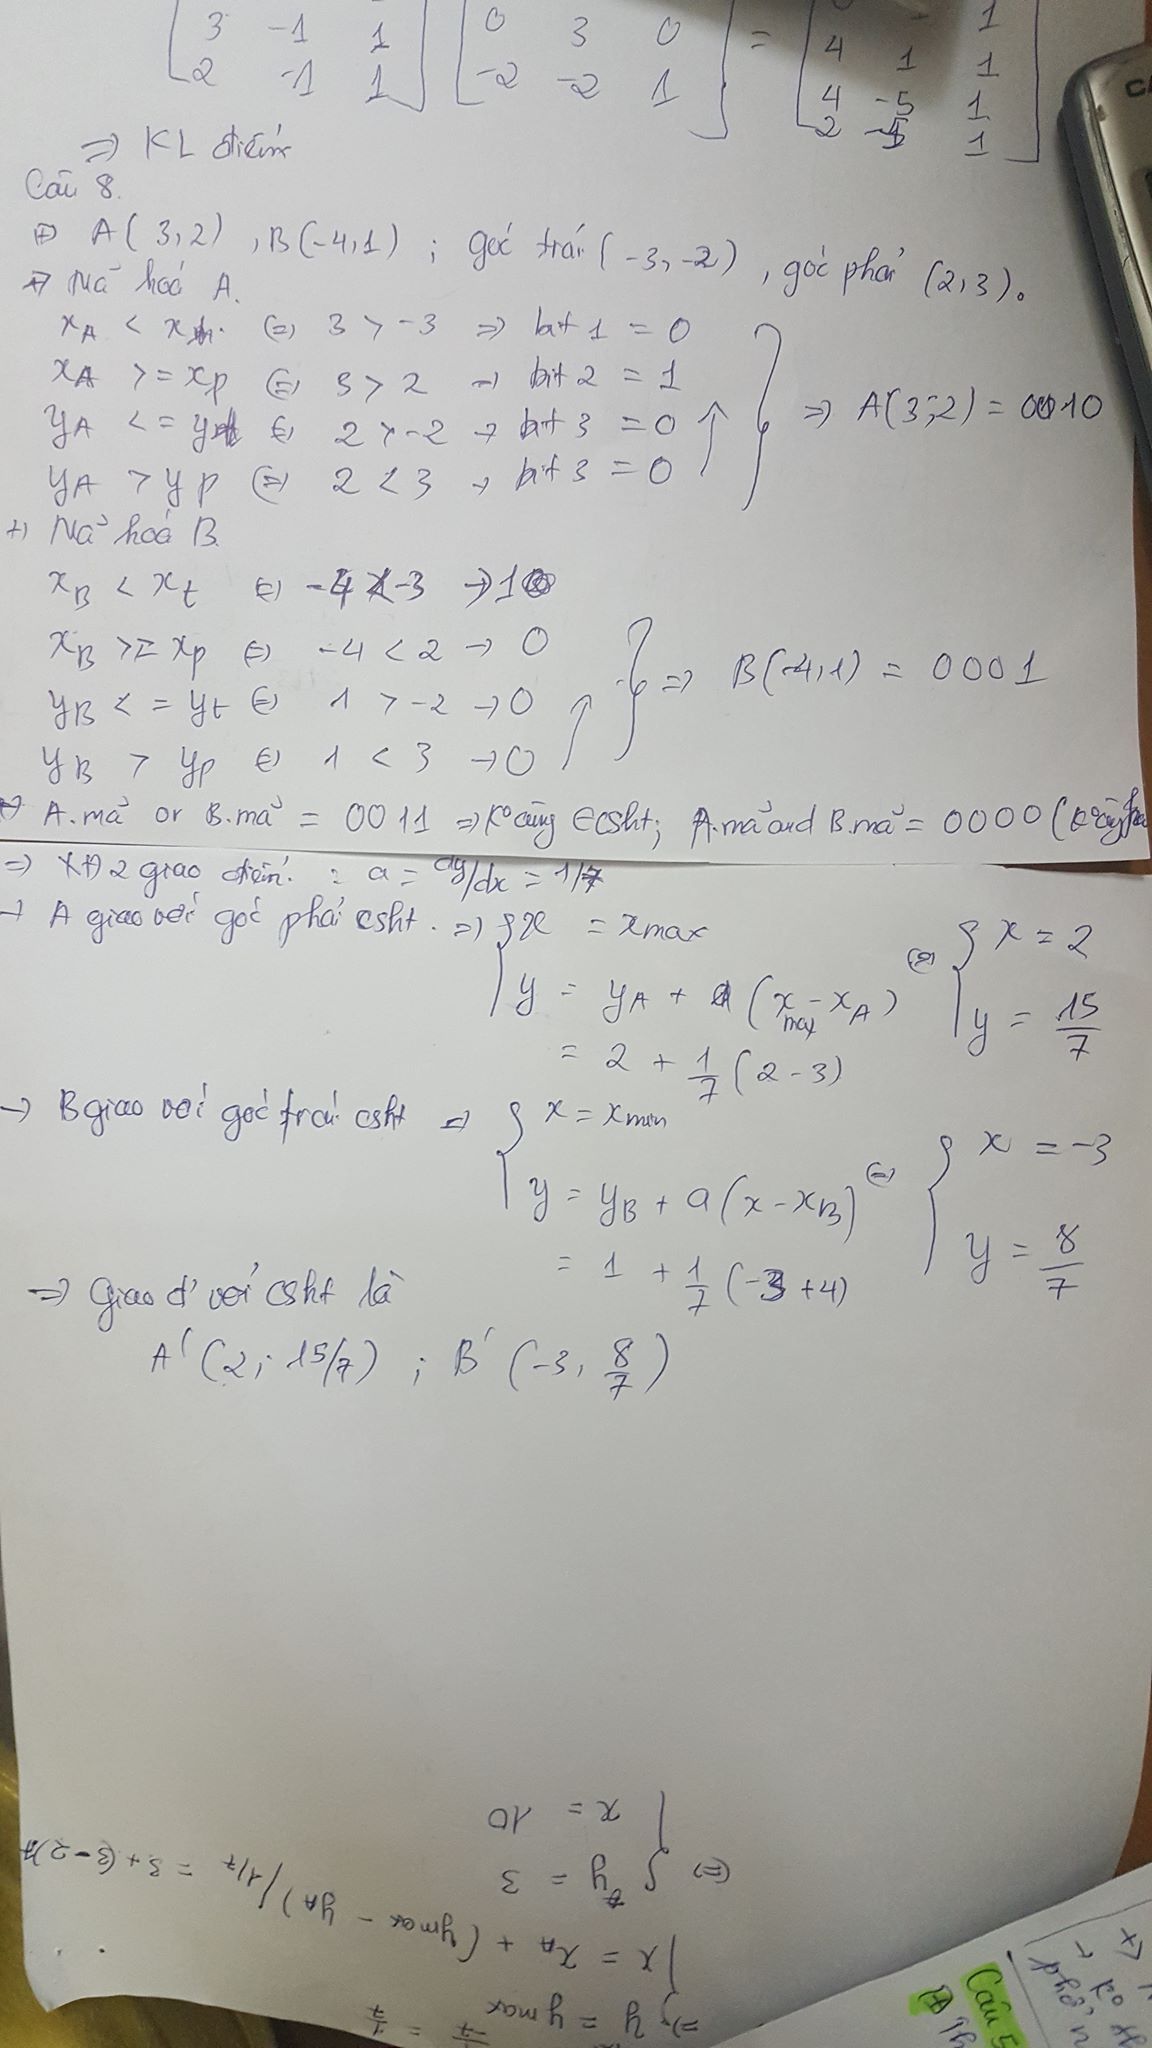 3 -1 1 0 3 0 = 4 1 1
2 -1 1 -2 -2 1 4 -5 1
2 1
=> KL điểm
Câu 8.
A(3,2), B(-4,1); góc trái (-3,-2), góc phải (2,3).
Mã hoá A.
xA < xt (=) 3 > -3 => bit 1 = 0
xA >= xp (=) 3 > 2 => bit 2 = 1
yA <= yt (=) 2 > -2 -> bit 3 = 0 => A(3;2) = 0010
yA > yp (=) 2 < 3 -> bit 3 = 0
+) Mã hoá B.
xB < xt (=) -4 < -3 -> 1
xB >= xp (=) -4 < 2 -> 0
yB <= yt (=) 1 > -2 -> 0 => B(-4,1) = 0001
yB > yp (=) 1 < 3 -> 0
A.mã or B.mã = 0011 => K° cùng ∈ csht; A.mã and B.mã = 0000 (K° cùng
=> XĐ 2 giao điểm : a = dy/dx = 1/7
-> A giao với góc phải csht. => { x = xmax (=) { x = 2
y = yA + a (xmax - xA) y = 15/7
= 2 + 1/7 (2 - 3)
-> B giao với góc trái csht => { x = xmin (=) { x = -3
y = yB + a (x - xB) y = 8/7
= 1 + 1/7 (-3 + 4)
=> Giao đ' với csht là
A' (2; 15/7) ; B' (-3, 8/7)
=> { y = ymax
x = xA + (ymax - yA) / 1/7 = 3 + (3 - 2) 7
(=) { y = 3
x = 10
Câu 5